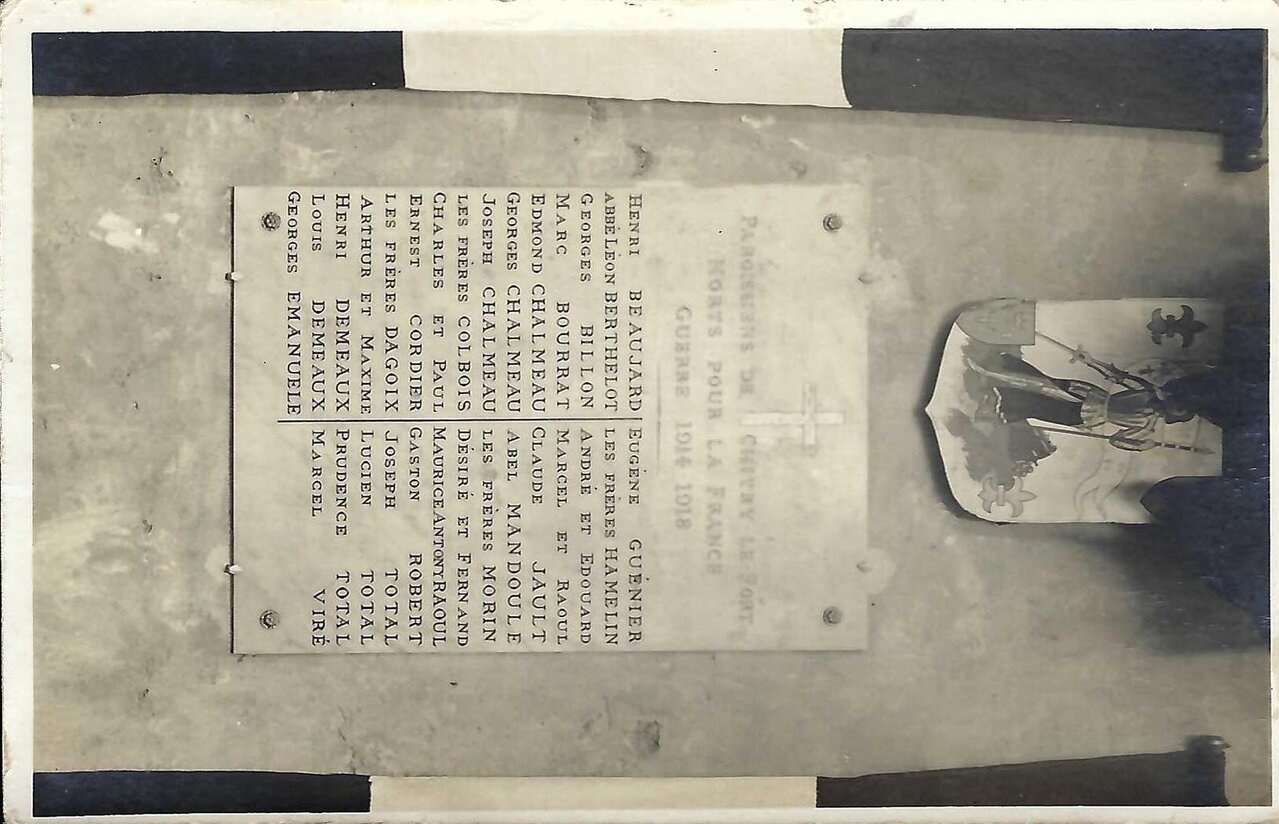 PAROISSIENS DE CHITRY LE FORT
MORTS POUR LA FRANCE
GUERRE 1914 1918
HENRI BEAUJARD
ABBÉ LÉON BERTHELOT
GEORGES BILLON
MARC BOURRAT
EDMOND CHALMEAU
GEORGES CHALMEAU
JOSEPH CHALMEAU
LES FRÈRES COLBOIS
CHARLES ET PAUL
ERNEST CORDIER
LES FRÈRES DAGOIX
ARTHUR ET MAXIME
HENRI DEMEAUX
LOUIS DEMEAUX
GEORGES EMANUELE
EUGÉNE GUÉNIER
LES FRÈRES HAMELIN
ANDRÉ ET EDOUARD
MARCEL ET RAOUL
CLAUDE JAULT
ABEL MANDOULE
LES FRÈRES MORIN
DÉSIRÉ ET FERNAND
MAURICE ANTONY RAOUL
GASTON ROBERT
JOSEPH TOTAL
LUCIEN TOTAL
PRUDENCE TOTAL
MARCEL VIRÉ